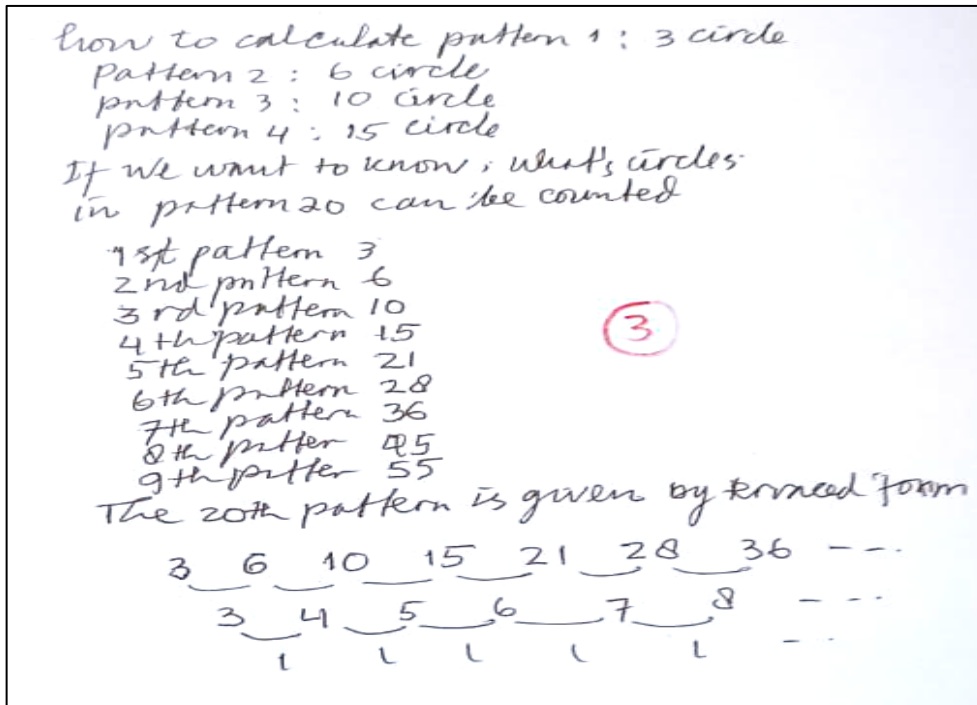 how to calculate pattern 1 : 3 circle
Pattern 2 : 6 circle
pattern 3 : 10 circle
pattern 4 : 15 circle
If we want to know, what's circles
in pattern 20 can be counted
1st pattern 3
2nd pattern 6
3rd pattern 10
4th pattern 15
5th pattern 21
6th pattern 28
7th pattern 36
8th patter 45
9th patter 55
3
The 20th pattern is given by form
3 6 10 15 21 28 36 ---
3 4 5 6 7 8 ---
1 1 1 1 1 --